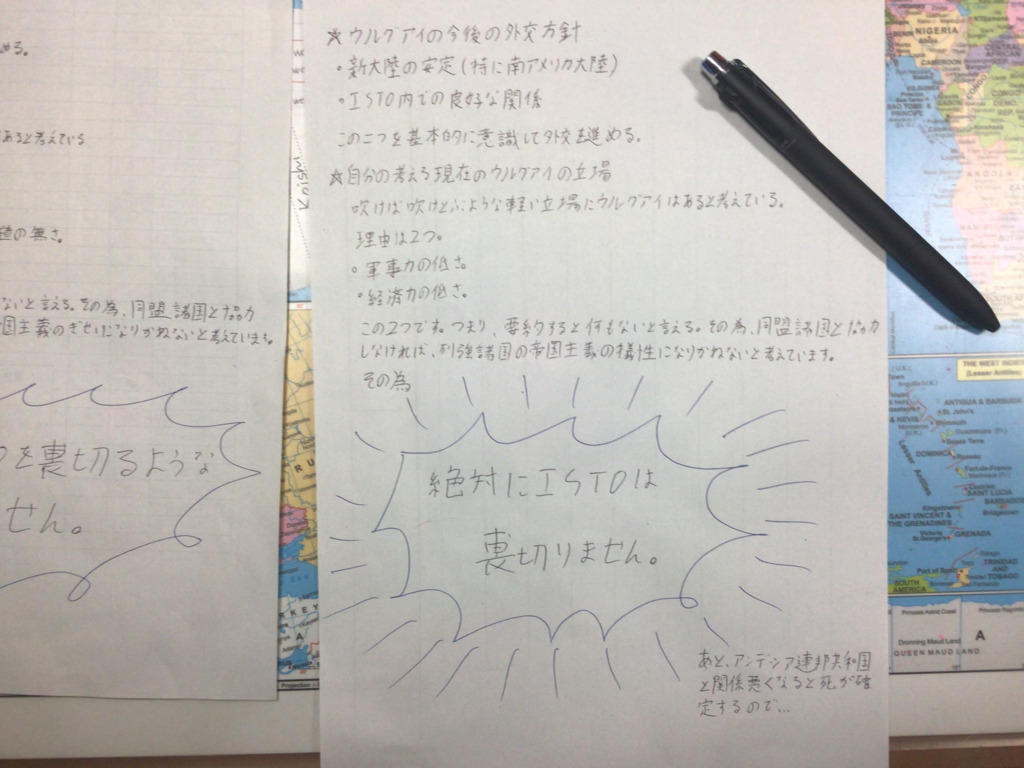 ★ウルグアイの今後の外交方針
・新大陸の安定(特に南アメリカ大陸)
・ISTO内での良好な関係
この二つを基本的に意識して外交を進める。
★自分の考える現在のウルグアイの立場
吹けば吹けとぶような軽い立場にウルグアイはあると考えている。
理由は2つ。
・軍事力の低さ。
・経済力の低さ。
この2つです。つまり、要約すると何もないと言える。その為、同盟諸国と協力
しなければ、列強諸国の帝国主義の犠性になりかねないと考えています。
その為
絶対にISTOは
裏切りません。
あと、アンデシア連邦共和国
と関係悪くなると死が確
定するので…
める。
あると考えている
の無さ。
ないと言える。その為、同盟諸国と協力
国主義のぎせいになりかねないと考えています。
を裏切るような
せん。
NIGERIA
CAMEROON
CONGO
SAO TOME &
PRINCIPE
THE WEST INDIES
(Lesser Antilles)
ANTIGUA & BARBUDA
St. John's
DOMINICA
Fort-de-France
SAINT LUCIA
SAINT VINCENT &
THE GRENADINES
GRENADA
Port of Spain
TRINIDAD
AND
TOBAGO
SOUTH
AMERICA
Princess Astrid Coast
Dronning Maud Land
QUEEN MAUD LAND
A
RU
RKEY
A